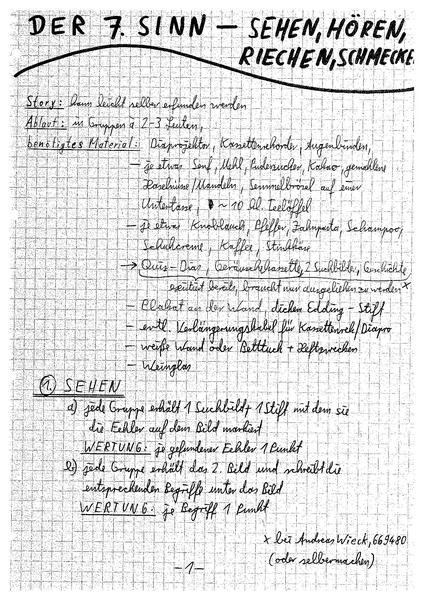 DER 7. SINN — SEHEN, HÖREN,
RIECHEN, SCHMECKE
Story: kann leicht selber erfunden werden
Ablauf: in Gruppen à 2-3 Leuten,
benötigtes Material: Diaprojektor, Kassettenrekorder, Augenbinden,
– je etwas Senf, Mehl, Puderzucker, Kakao, gemahlene
Haselnüsse/Mandeln, Semmelbrösel auf einer
Untertasse, ~ 10 Teelöffel
– je etwas Knoblauch, Pfeffer, Zahnpasta, Schampoo,
Schuhcreme, Kaffee, Stinkkäse
→ Quis-Dias, Geräuschekassette, 2 Suchbilder, Geschichte
existiert bereits, braucht nur ausgeliehen zu werden ×
– Plakat an der Wand, dicken Edding-Stift
– evtl. Verlängerungskabel für Kassettenrek/Diapro
– weiße Wand oder Betttuch + Heftzwecken
– Weinglas
1. SEHEN
a) jede Gruppe erhält 1 Suchbild + 1 Stift mit dem sie
die Fehler auf dem Bild markiert
WERTUNG: je gefundener Fehler 1 Punkt
b) jede Gruppe erhält das 2. Bild und schreibt die
entsprechenden Begriffe unter das Bild
WERTUNG: je Begriff 1 Punkt
× bei Andreas Wieck, 669480
(oder selbermachen)
-1-